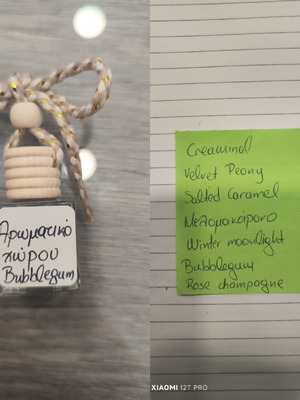 Αρωματικό
χώρου
Bubblegum
Creaminal
Velvet Peony
Salted Caramel
Μελομακάρονο
Winter moonlight
Bubblegum
Rose champagne
XIAOMI 12T PRO